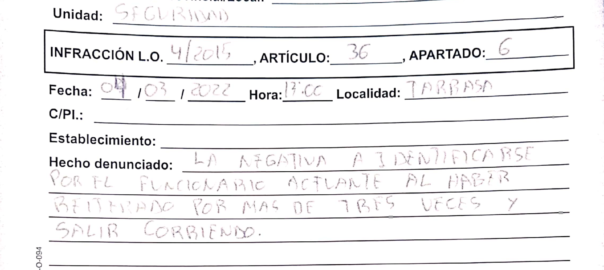 Unidad: SEGURIDAD
INFRACCIÓN L.O. 4/2015, ARTÍCULO: 36, APARTADO: 6
Fecha: 04 / 03 / 2022 Hora: 17:00 Localidad: TARRASA
C/Pl.:
Establecimiento:
Hecho denunciado: LA NEGATIVA A IDENTIFICARSE
POR EL FUNCIONARIO ACTUANTE AL HABER
REITERADO POR MAS DE TRES VECES Y
SALIR CORRIENDO.
-O-094